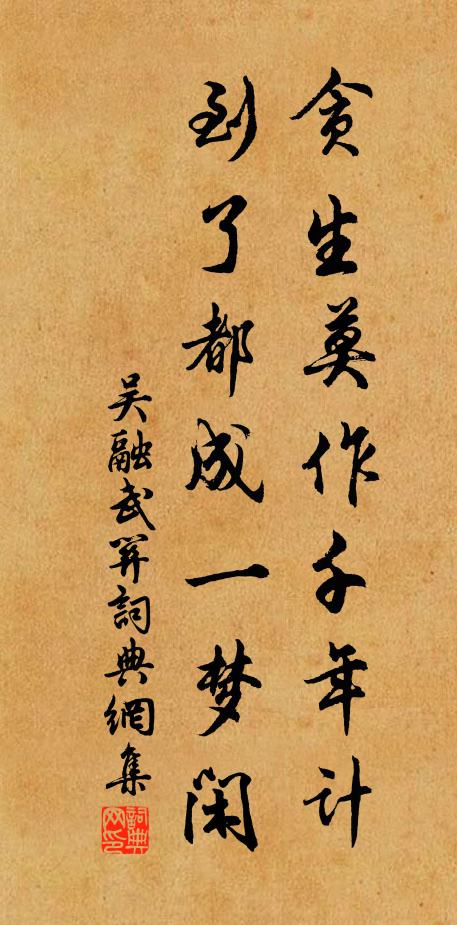 贪生莫作千年计
到了都成一梦闲
吴融武关詞典網集
詞典网印